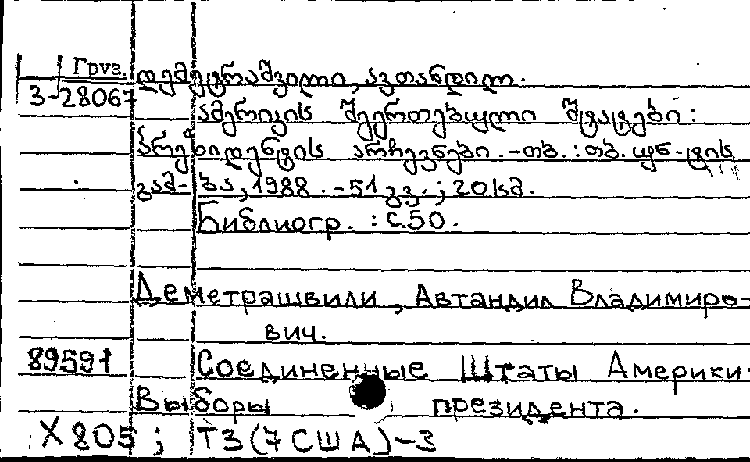 Груз. დემეტრაშვილი, ავთანდილ.
3-28067
ამერიკის შეერთებული შტატები:
პრეზიდენტის არჩევნები. -თბ.: თბ. უნ-ტის
გამ-ბა, 1988. -51 გვ.; 20 სმ.
Библиогр. : с.50.
Деметрашвили, Автандил Владимиро-
вич.
89591 Соединенные Штаты Америки.
Выборы президента.
X 805 ; T3(7 США)-3